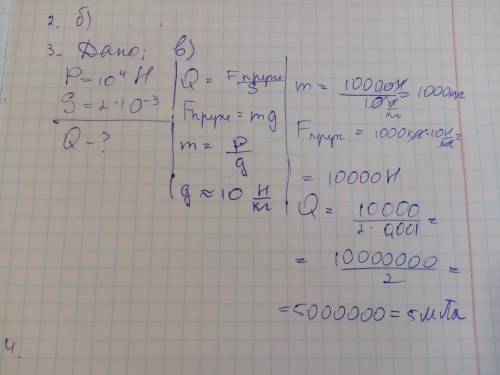 2. б)
3. Дано: в)
P = 10⁴ Н
S = 2·10⁻³
Q – ?
Q = Fпруж / S
Fпруж = mg
m = P / g
g ≈ 10 Н/кг
m = 10000Н / 10 Н/кг = 1000кг
Fпруж = 1000кг·10 Н/кг =
= 10000Н
Q = 10000 / 2·0,001 =
= 10000000 / 2 =
= 5000000 = 5 мПа
4.